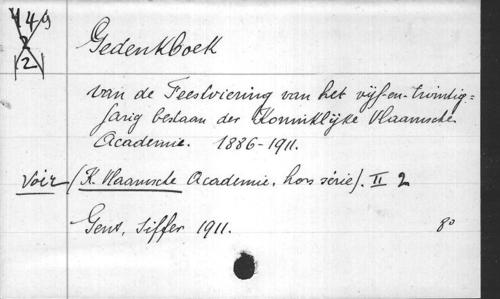 449
2
2
Gedenkboek
van de Feestviering van het vijf-en-twintig=
jarig bestaan der Koninklijke Vlaamsche
Academie. 1886-1911.
Voir (K. Vlaamsche Academie, hors série). II 2
Gent, Siffer 1911. 8º